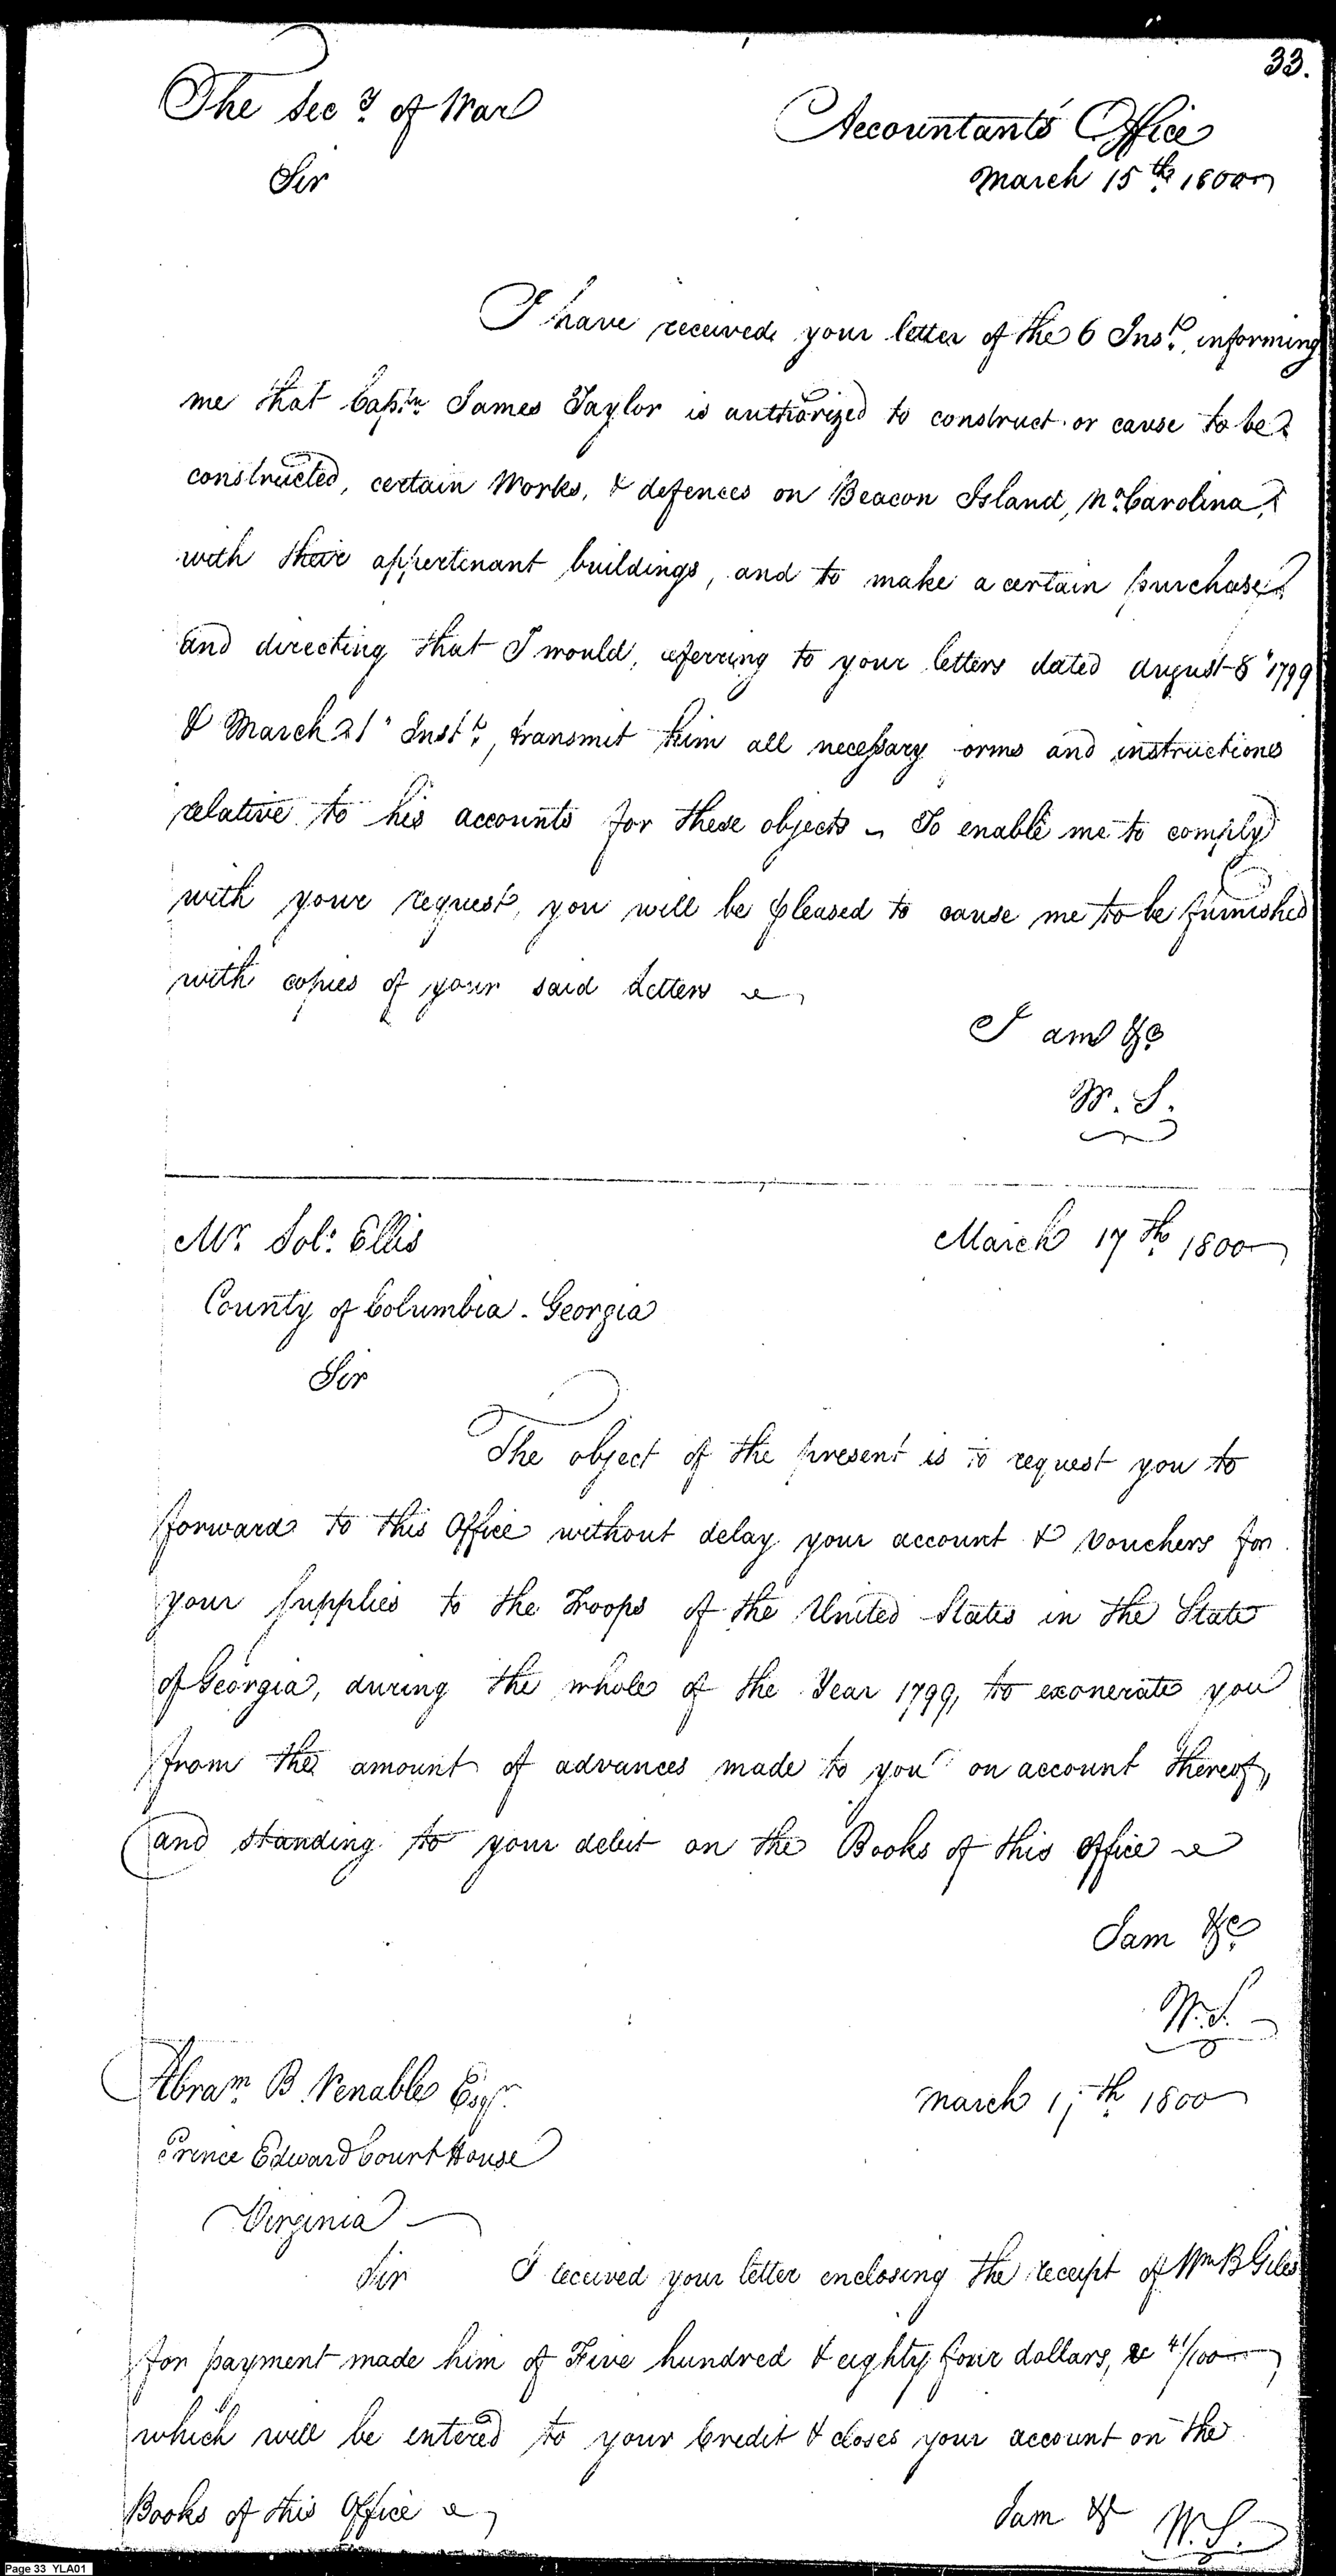 33.
The Secy of War
Accountants Office
March 15th 1800
Sir
I have received your letter of the 6 Inst. informing
me that Captn James Taylor is authorized to construct or cause to be
constructed, certain Works, & defences on Beacon Island, No. Carolina,
with their appertenant buildings, and to make a certain purchase,
and directing that I would, referring to your letters dated August 8" 1799
& March 21" Inst., transmit him all necessary orms and instructions
relative to his accounts for these objects - To enable me to comply
with your request, you will be pleased to cause me to be furnished
with copies of your said Letters
I am &c
W. S.
Mr. Sol: Ellis
March 17th 1800
County of Columbia - Georgia
Sir
The object of the present is to request you to
forward to this Office without delay your account & Vouchers for
your supplies to the Troops of the United States in the State
of Georgia, during the whole of the Year 1799, to exonerate you
from the amount of advances made to you on account thereof,
and standing to your debit on the Books of this Office
I am &c
W. S.
Abram B Venable Esqr.
March 17th 1800
Prince Edward Court House
Virginia
Sir I received your letter enclosing the receipt of Wm B Giles
for payment made him of Five hundred & eighty four dollars, & 41/100
which will be entered to your Credit & closes your account on the
Books of this Office
I am &c W. S.
Page 33 YLA01